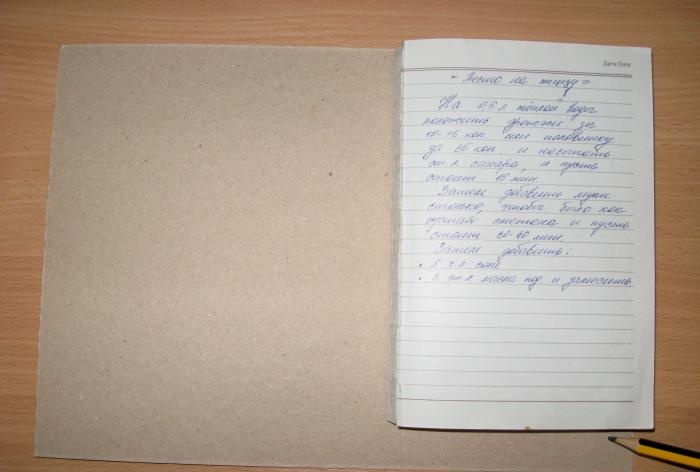 Дата/Date
= Тесто на пиццу =
На 0,5 л. тёплой воды
положить дрожжи за
10-15 коп. или половинку
за 55 коп. и насыпать
ст. л. сахара, и пусть
стоит 15 мин.
Затем добавить муки
столько, чтобы было как
густая сметана и пусть
стоит 30-40 мин.
Затем добавить:
• 1 ч. л. соли
• 3 ст. л. масла под. и замесить